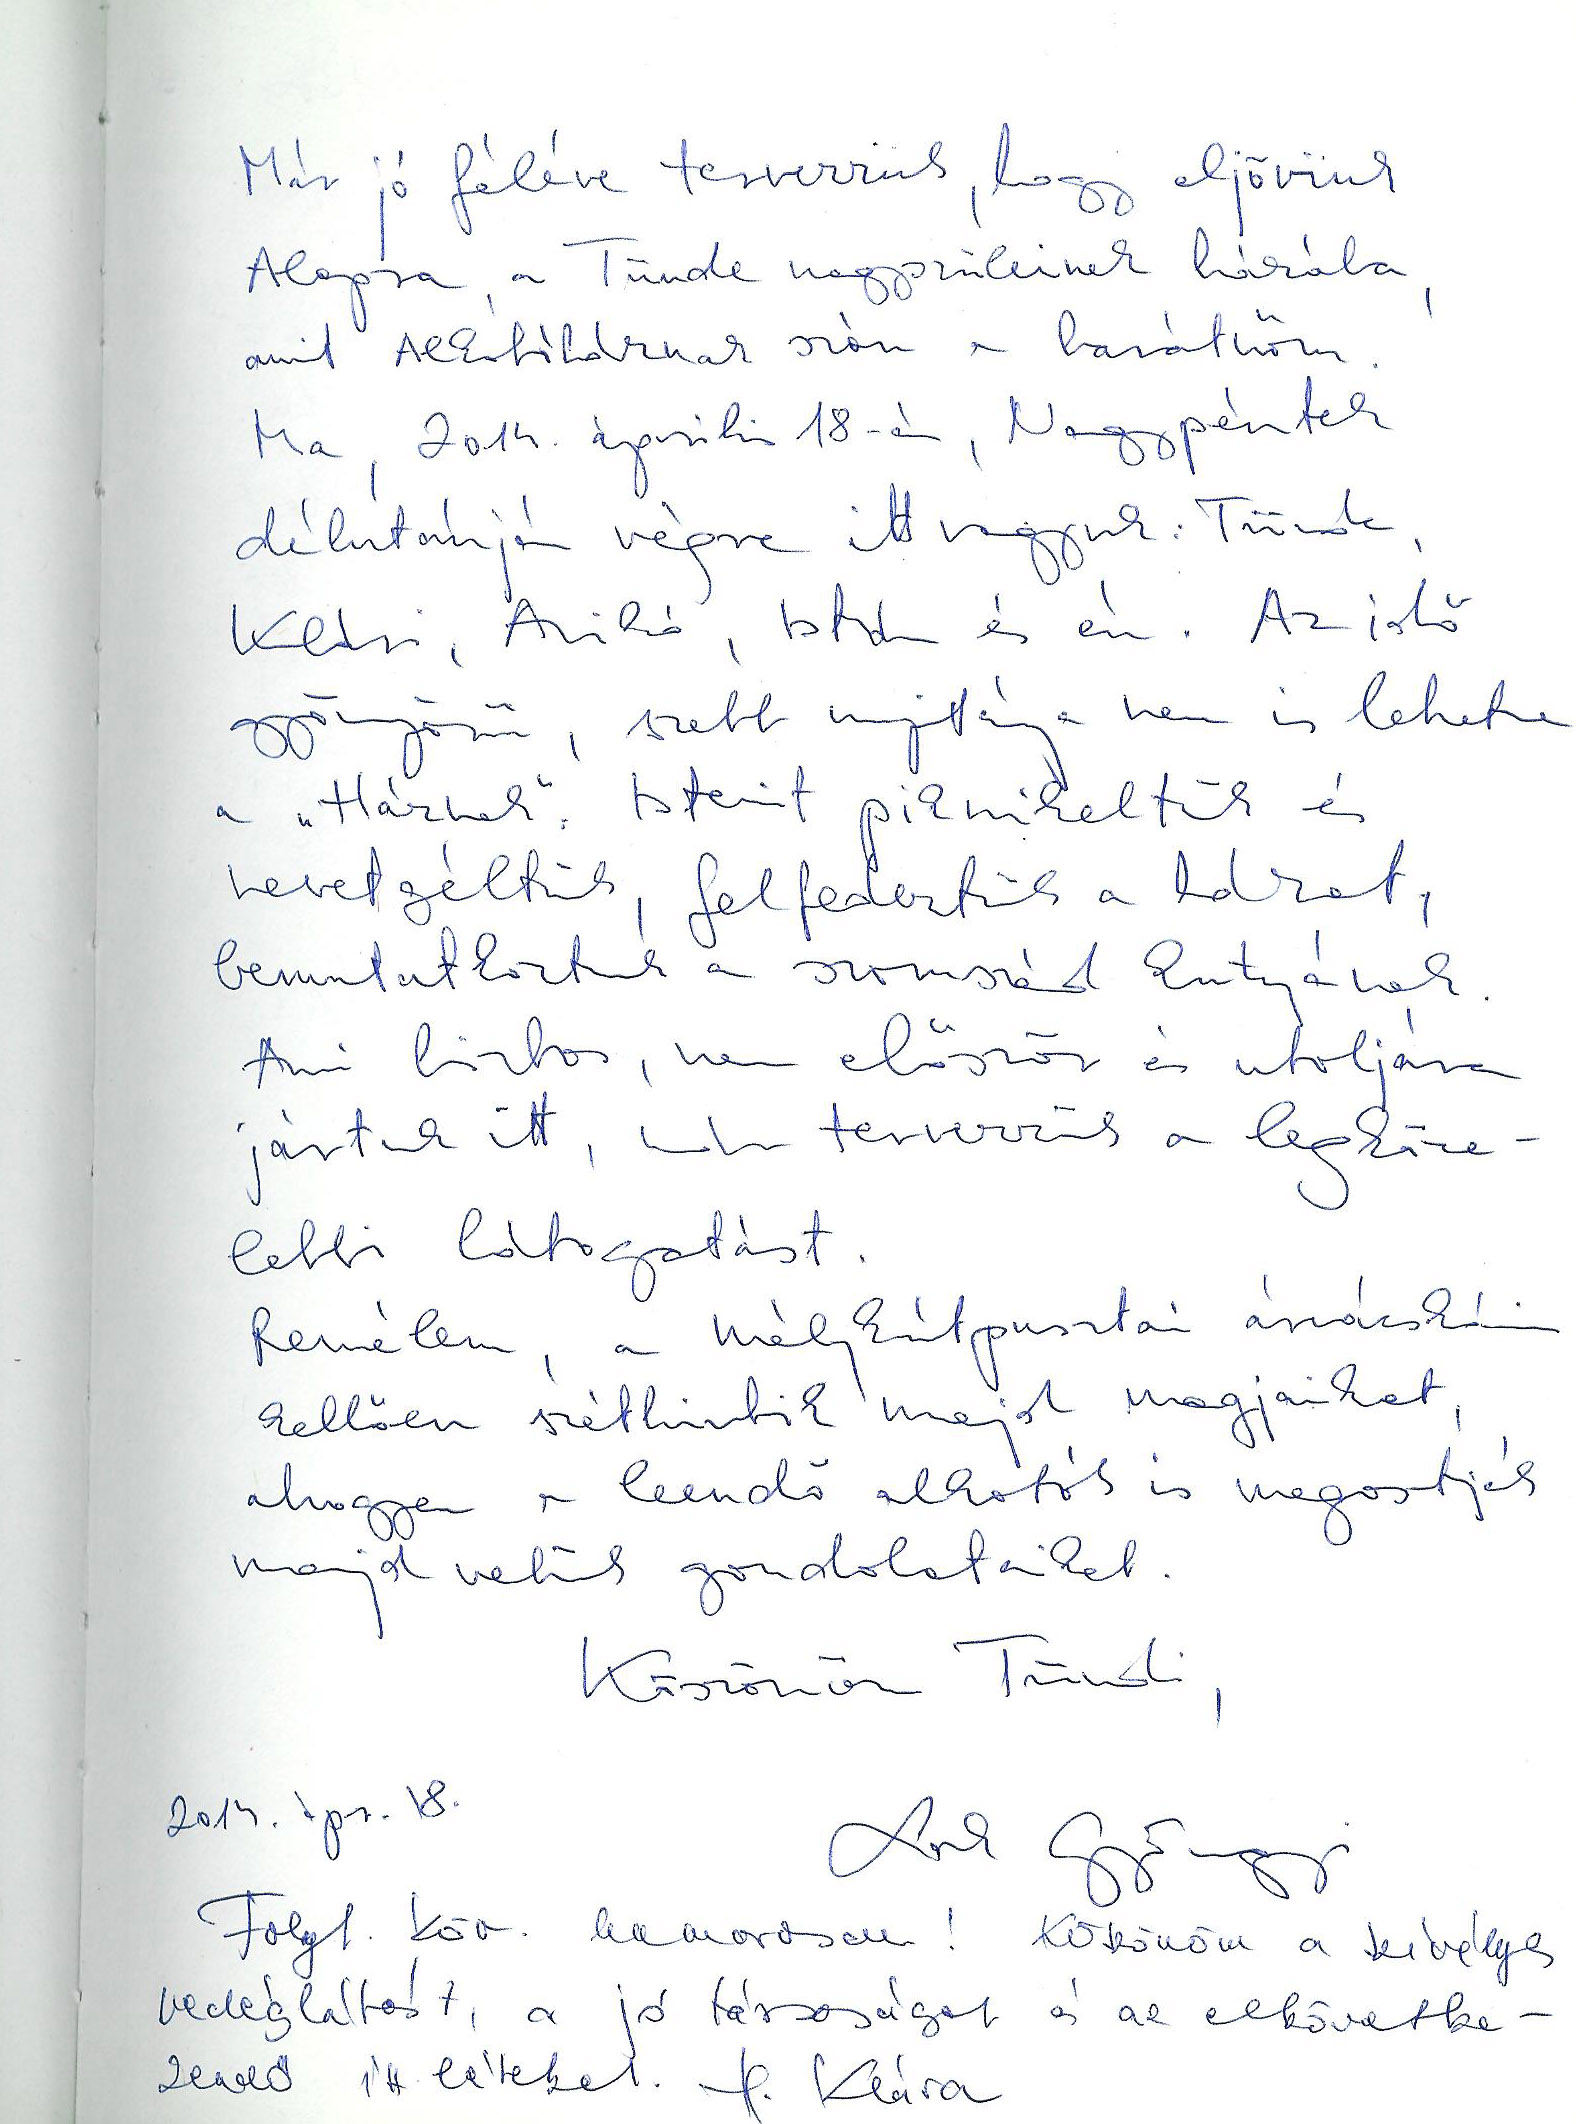 Már jó féléve tervezzük, hogy eljövünk
Alapra, a Tünde nagyszüleinek házába,
amit Alkotóháznak szán a barátnőm.
Ma, 2014. április 18-án, Nagypéntek
délutánján végre itt vagyunk: Tünde,
Klári, Anikó, István és én. Az idő
gyönyörű, szebb nyitánya nem is lehetne
a „Háznak". Istenit piknikeltünk és
nevetgéltünk, felfedeztük a házat,
bemutatkoztunk a szomszéd kutyának.
Ami biztos, nem először és utoljára
jártunk itt, már tervezzük a legköze-
lebbi látogatást.
Remélem, a mélykútpusztai árvácskáim
kellően széthintik majd magjaikat,
ahogyan a leendő alkotók is megosztják
majd velünk gondolataikat.
Köszönöm Tündi,
2014. ápr. 18.
Gyöngyi
Folyt. köv. hamarosan! Köszönöm a kivételes
vendéglátást, a jó társaságot és az elkövetke-
zendő itt léteket. H. Klára